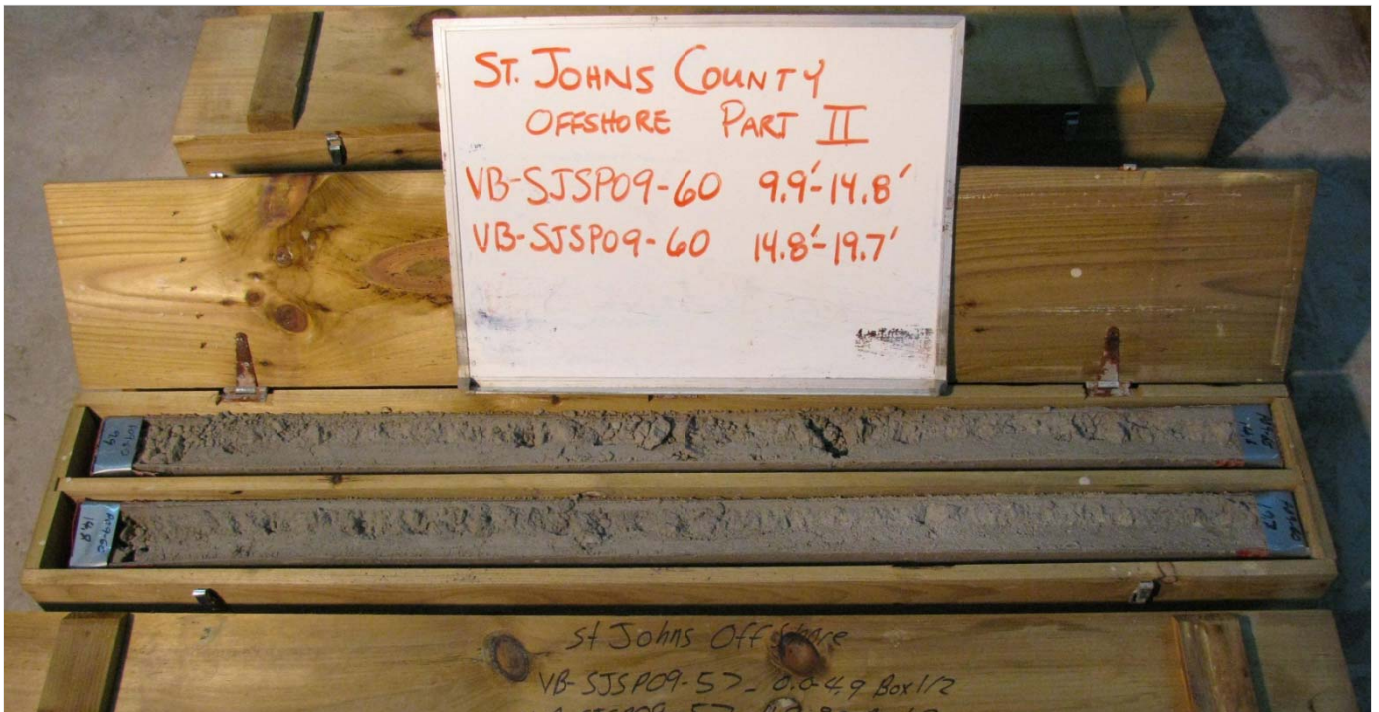 ST. JOHNS COUNTY
OFFSHORE PART II
VB-SJSP09-60 9.9'-14.8'
VB-SJSP09-60 14.8'-19.7'
P09-60
9.9
14.8
P09-60
14.8
19.7
St Johns Offshore
VB-SJSP09-57- 0.0-4.9 Box 1/2